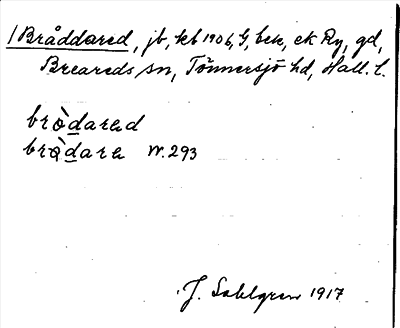 /Bråddared, jb, kb 1906, G, bek, ek Ry, gd,
Breareds sn, Tönnersjö hd, Hall. l.
bròdared
bròdara W. 293
J. Sahlgren 1917